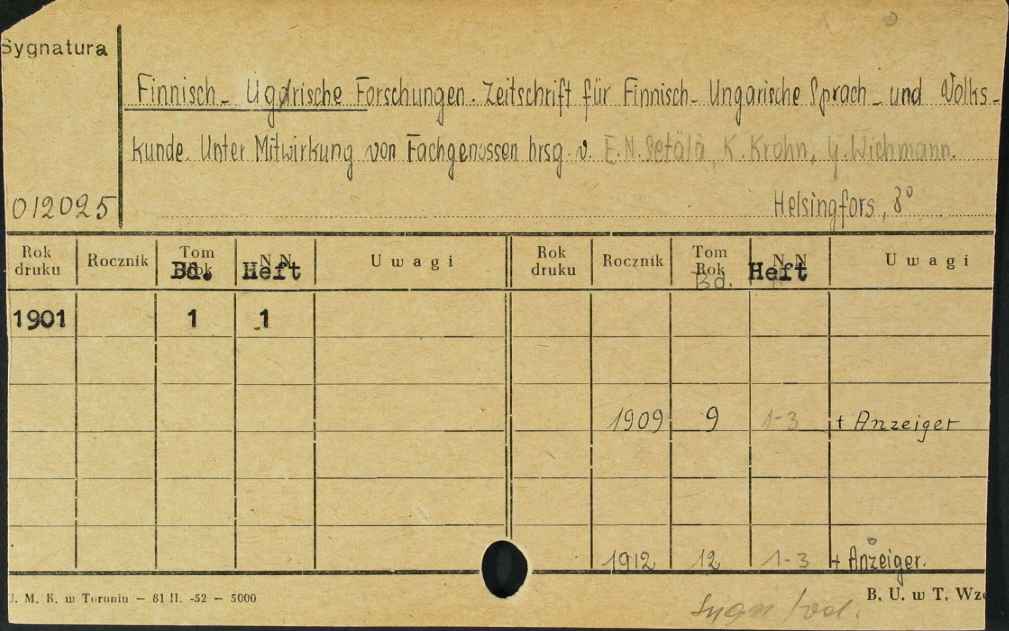 Sygnatura
Finnisch - Ugrische Forschungen. Zeitschrift für Finnisch - Ungarische Sprach - und Volks-
kunde. Unter Mitwirkung von Fachgenossen hrsg. v. E.N. Setälä, K. Krohn, Y. Wichmann.
012025 Helsingfors, 8°
Rok druku Rocznik Tom Rok Bd. N N Heft Uwagi Rok druku Rocznik Tom Rok Bd. N N Heft Uwagi
1901 1 1
1909 9 1-3 + Anzeiger
1912 12 1-3 + Anzeiger.
U. M. K. w Toruniu — 61 II. -52 — 5000 B. U. w T. Wzó
Sygn